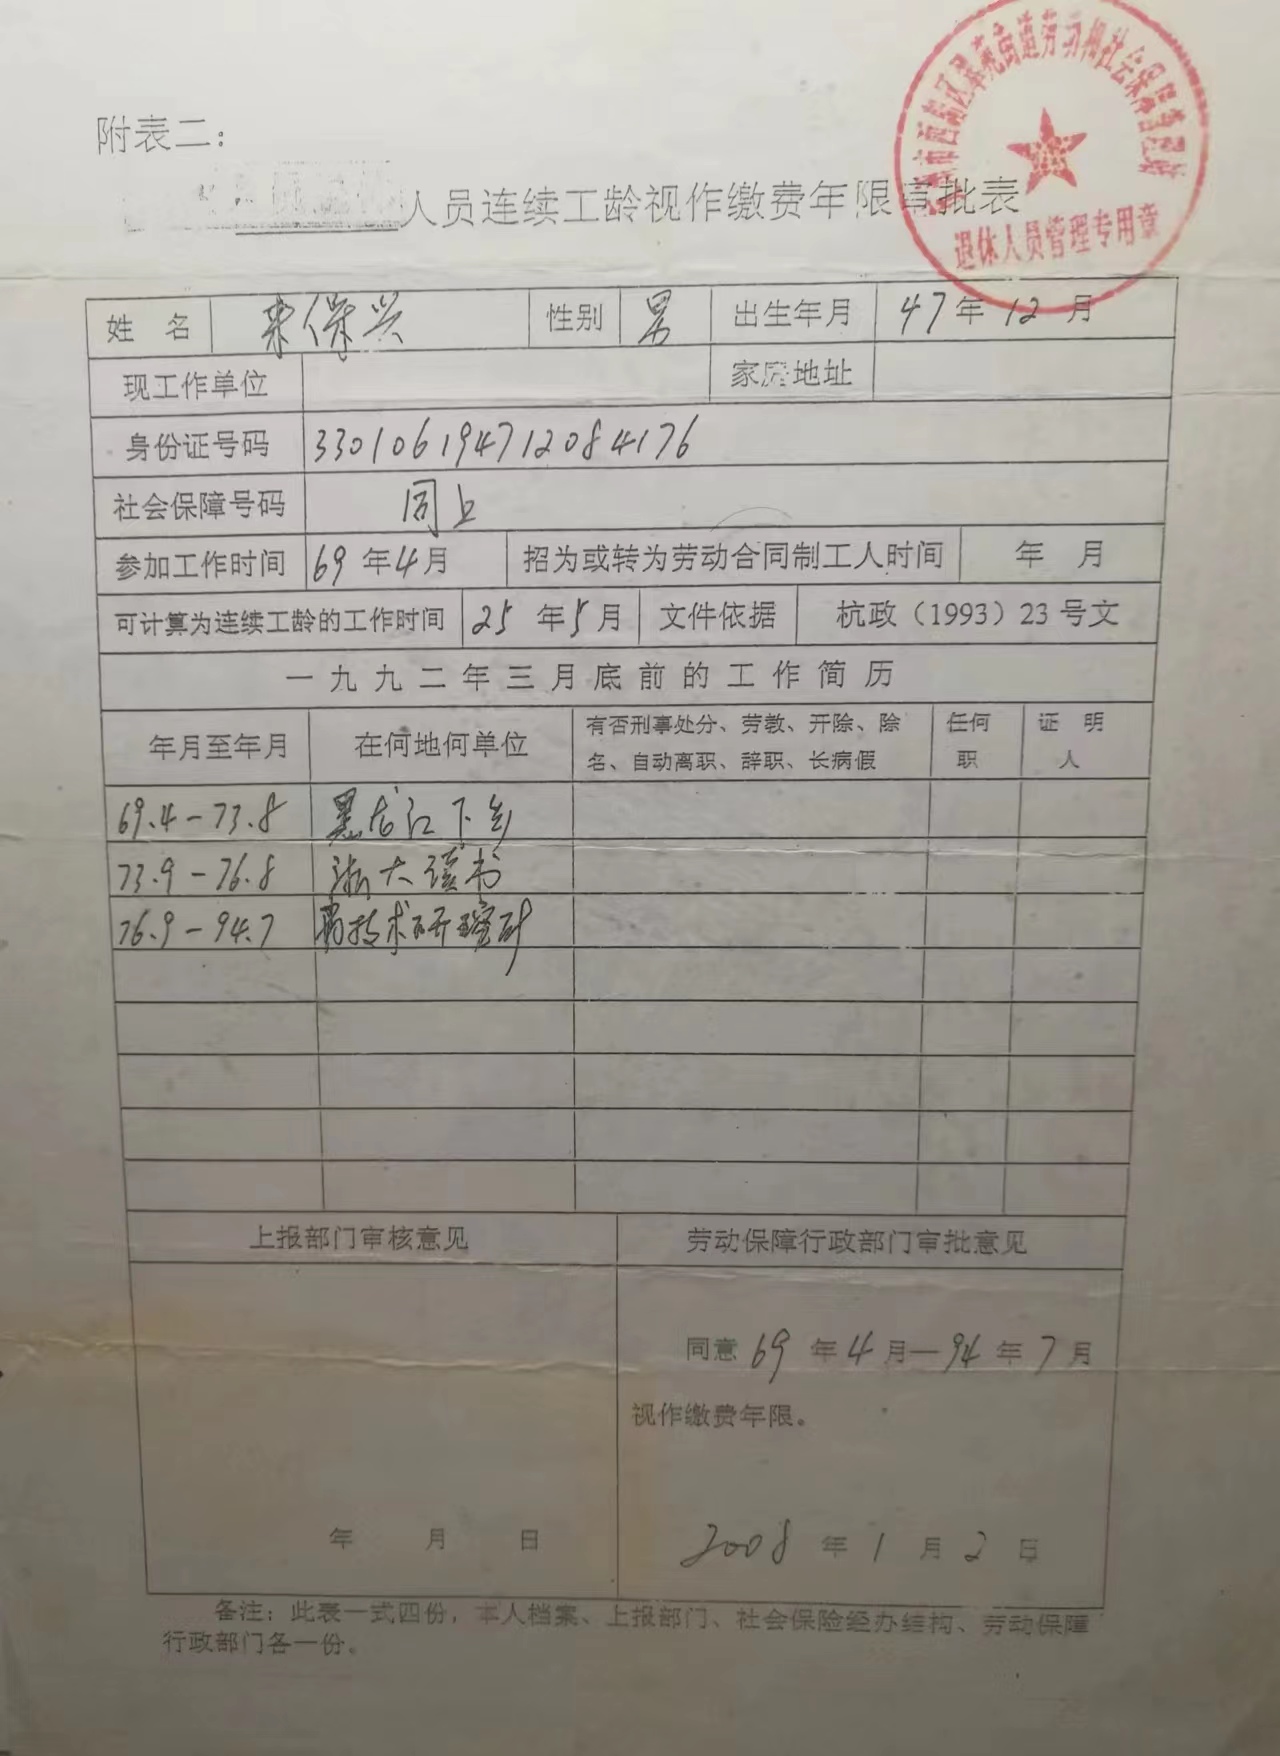 附表二：
人员连续工龄视作缴费年限审批表
退休人员管理专用章
姓 名 来保兴 性别 男 出生年月 47年12月
现工作单位 家庭地址
身份证号码 330106194712084176
社会保障号码 同上
参加工作时间 69年4月 招为或转为劳动合同制工人时间 年 月
可计算为连续工龄的工作时间 25年5月 文件依据 杭政（1993）23号文
一九九二年三月底前的工作简历
年月至年月 在何地何单位 有否刑事处分、劳教、开除、除名、自动离职、辞职、长病假 任何职 证明人
69.4-73.8 黑龙江下乡
73.9-76.8 浙大读书
76.9-94.7 技术研
上报部门审核意见 劳动保障行政部门审批意见
同意69年4月—94年7月
视作缴费年限。
年 月 日 2008年1月2日
备注：此表一式四份，本人档案、上报部门、社会保险经办结构、劳动保障
行政部门各一份。